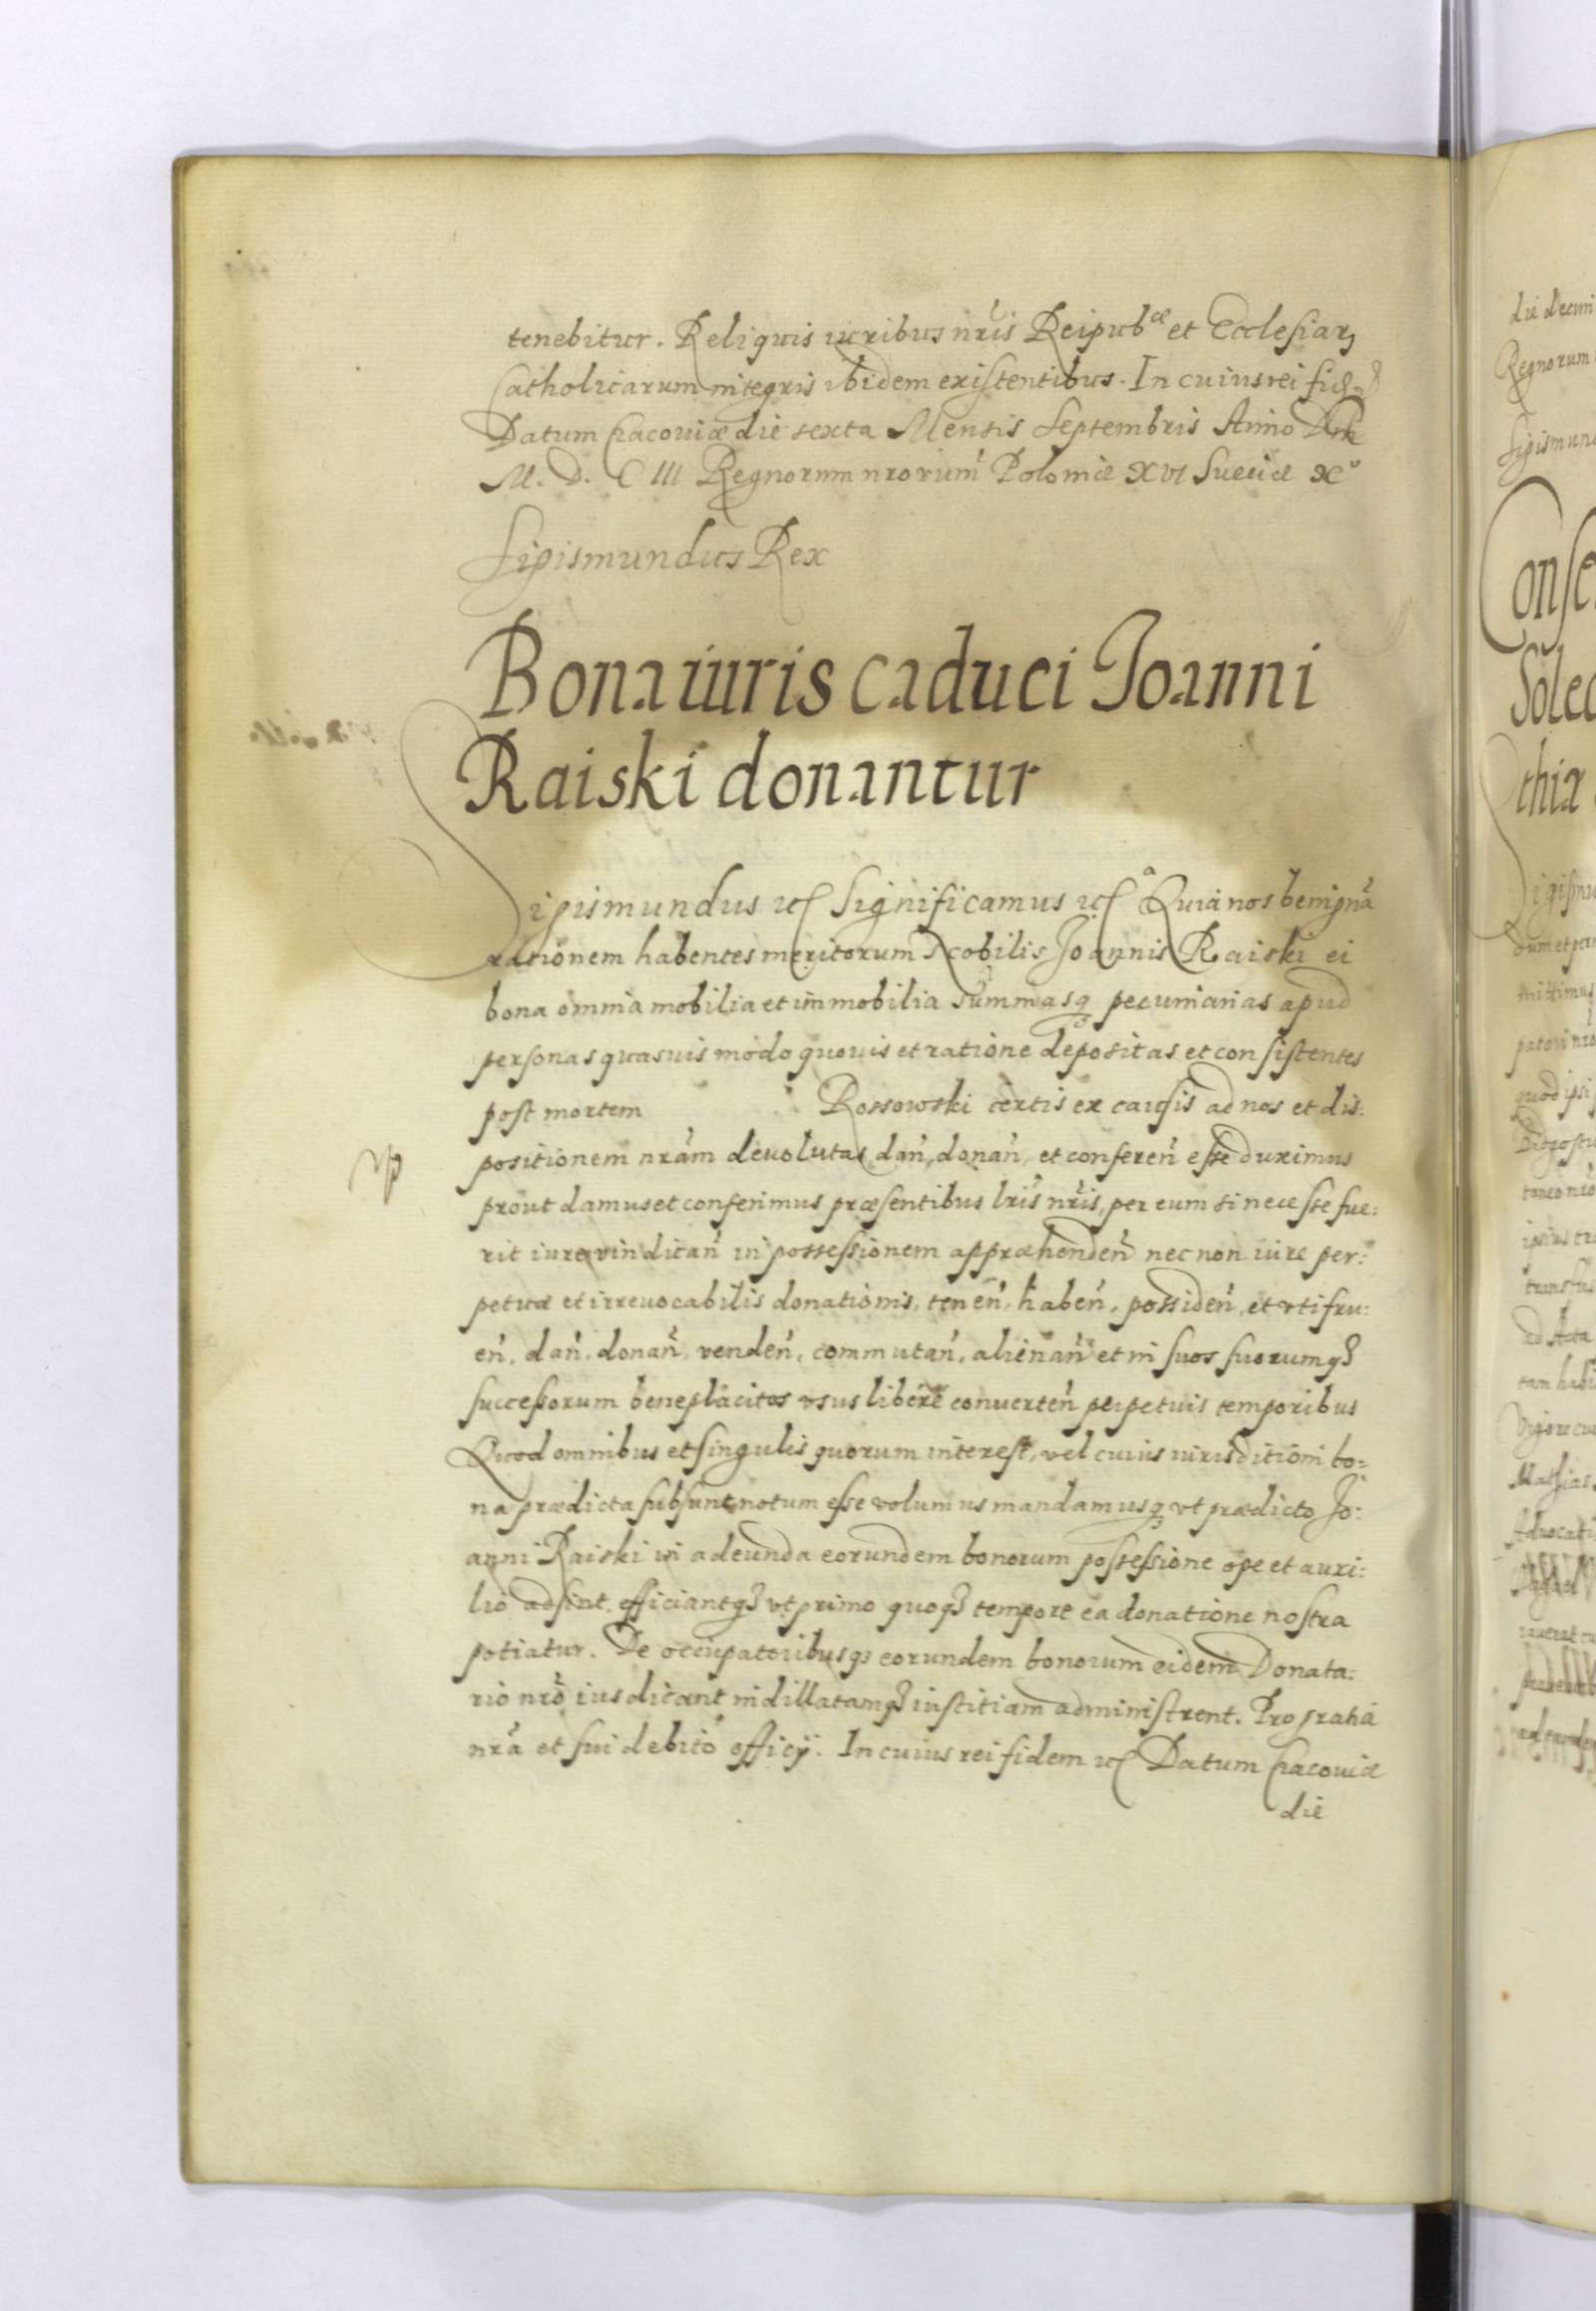 tenebitur. Reliquis iuribus nr̃is Reipub^cæ et Ecclesiarꝝ
Catholicarum integris ibidem existentibus. In cuius rei fid
Datum Cracoviæ die sexta Mensis Septembris Anno Dnĩ
M. D. C III Regnorum nrorum̃ Poloniæ XVI Sueciæ X°
Sigismundus Rex
Bona iuris caduci Joanni
Raiski donantur
Sigismundus etc Significamus etc Quia nos benignã
rationem habentes meritorum Nobilis Joannis Raiski ei
bona omnia mobilia et immobilia summasq pecuniarias apud
personas quasuis modo quouis et ratione depositas et consistentes
post mortem Rossowski certis ex causis ad nos et dis:
positionem nrãm deuolutas dañ, donañ, et confereñ esse duximus
prout damus et conferimus præsentibus lrĩs nrĩs, per eum si necesse fue:
rit iure vindicañ in possessionem appræhendeñ nec non iure per:
petuæ et irreuocabilis donationis, teneñ, habeñ, possideñ, et vtifru:
eñ, dañ, donañ, vendeñ, commutañ, alienañ et in suos suorumq3
successorum beneplacitos vsus liberè conuerteñ perpetuis temporibus
Quod omnibus et singulis quorum interest, vel cuius iurisditioni bo:
na prædicta subsunt notum esse volumus mandamusq vt prædicto Jo:
anni Raiski in adeunda eorundem bonorum possessione ope et auxi:
lio adsint efficiantq3 vt primo quoq3 tempore ea donatione nostra
potiatur. De occupatoribusq3 eorundem bonorum eidem Donata:
rio nrõ ius dicant indillatamq3 iustitiam administrent. Pro gratia
nrã et sui debito officij. In cuius rei fidem etc Datum Cracouiæ
die